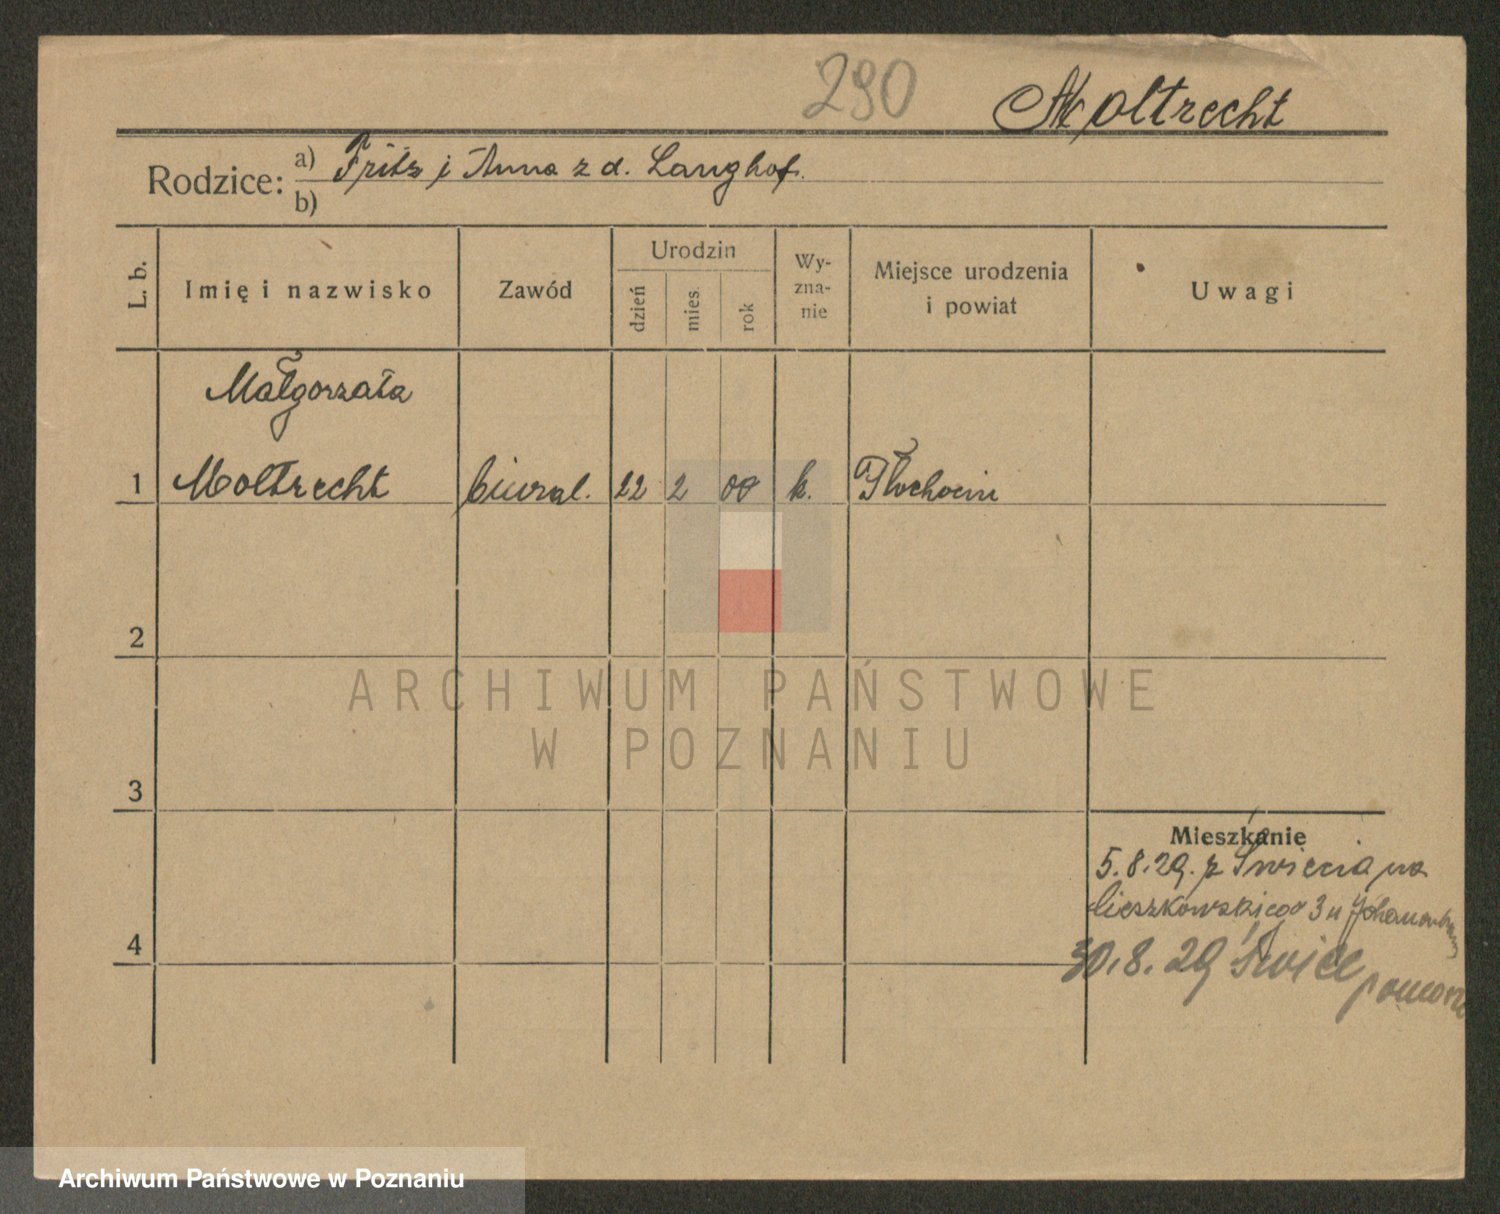 290 Moltrecht
Rodzice: a) Fritz i Anna z d. Langhof.
b)
L. b. Imię i nazwisko Zawód Urodzin dzień mies. rok Wyznanie Miejsce urodzenia i powiat Uwagi
Małgorzata
1 Moltrecht biural. 22 2 00 k. Płochocin
2
ARCHIWUM PAŃSTWOWE
W POZNANIU
3
Mieszkanie
5.8.29. z Świecia na
Cieszkowskiego 3 u
4
30.8.29 Świecie
pomorze
Archiwum Państwowe w Poznaniu